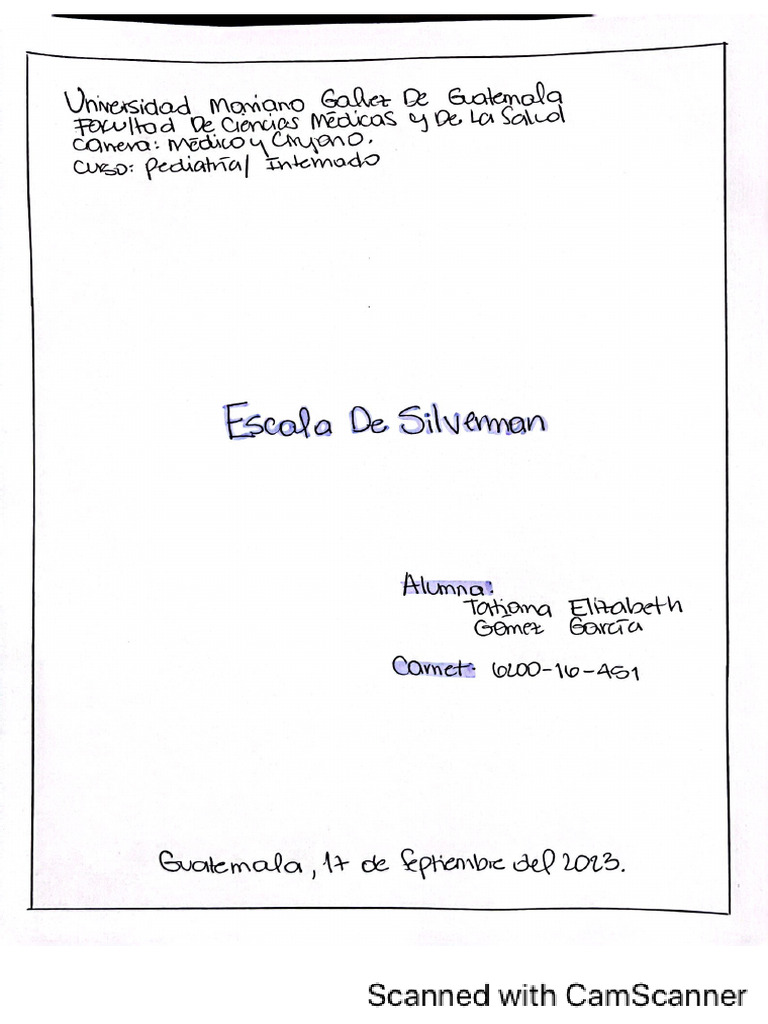 Universidad Mariano Galvez De Guatemala
Facultad De Ciencias Médicas y De La Salud
Carrera: Médico y Cirujano.
Curso: Pediatría/ Internado
Escala De Silverman
Alumna:
Tatiana Elizabeth
Gómez García
Carnet: 6200-16-451
Guatemala, 17 de Septiembre del 2023.
Scanned with CamScanner